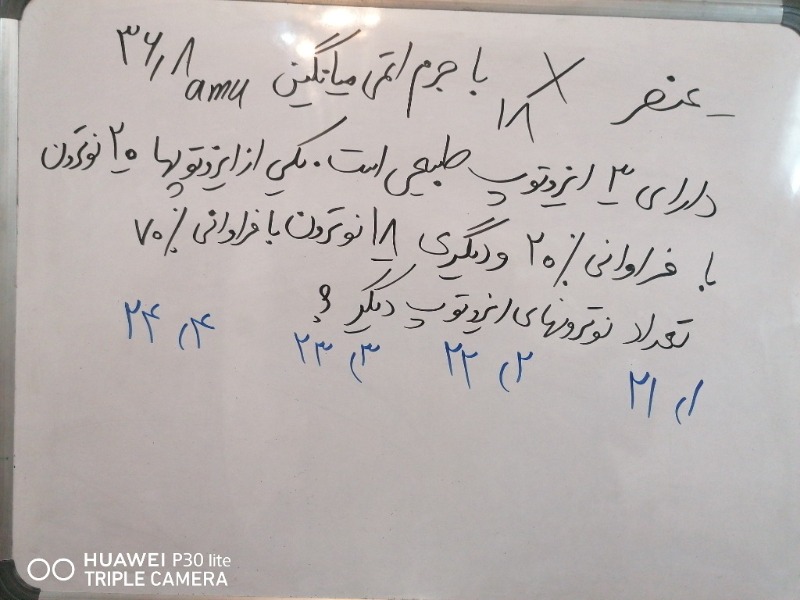 - عنصر ₁₈X با جرم اتمی میانگین ۳۶٫۸ amu
دارای ۳ ایزوتوپ طبیعی است. یکی از ایزوتوپها ۲۰ نوترون
با فراوانی ٪۲۰ و دیگری ۱۸ نوترون با فراوانی ٪۷۰
تعداد نوترونهای ایزوتوپ دیگر ؟
۱) ۲۱ ۲) ۲۲ ۳) ۲۳ ۴) ۲۴
HUAWEI P30 lite
TRIPLE CAMERA